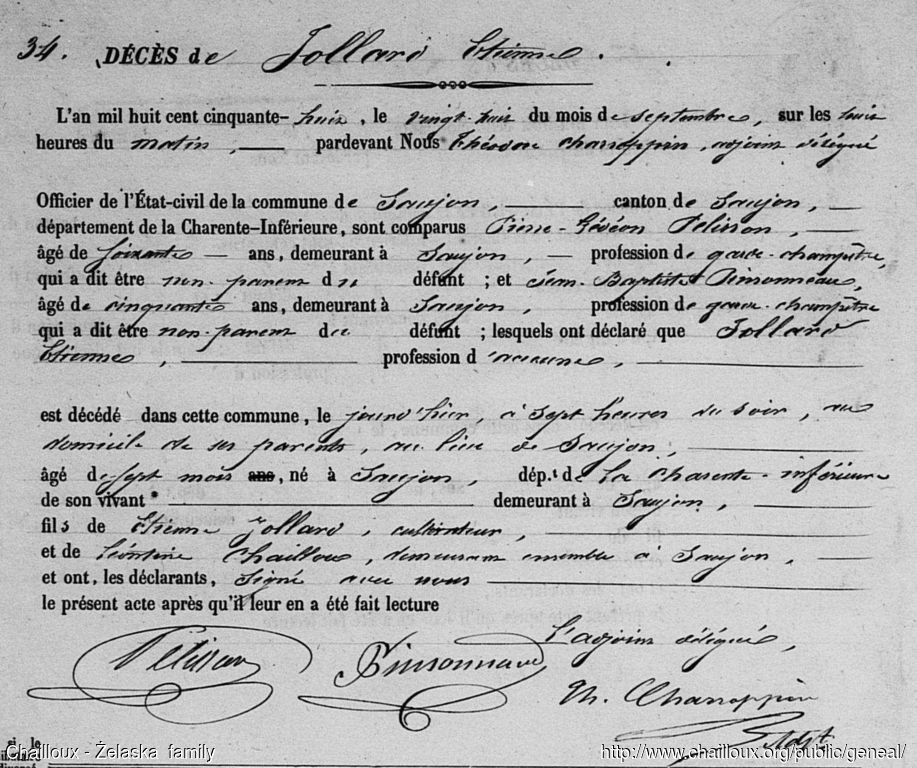 34. DÉCÈS de Jollard Etienne.
L'an mil huit cent cinquante-huit, le vingt-huit du mois de septembre, sur les huit
heures du matin, pardevant Nous Théodore Charroppin, adjoint délégué
Officier de l'État-civil de la commune de Saujon, canton de Saujon,
département de la Charente-Inférieure, sont comparus Pierre-Gédéon Pelisson,
âgé de soixante ans, demeurant à Saujon, profession de garde-champêtre,
qui a dit être non-parent du défunt ; et Jean-Baptiste Pinsonneau,
âgé de cinquante ans, demeurant à Saujon, profession de garde-champêtre
qui a dit être non-parent du défunt ; lesquels ont déclaré que Jollard
Etienne, profession d'aucune,
est décédé dans cette commune, le jour d'hier, à sept heures du soir, au
domicile de ses parents, au lieu de Saujon,
âgé de sept mois ans, né à Saujon, dép.t de La Charente-inférieure
de son vivant demeurant à Saujon,
fils de Etienne Jollard, cultivateur,
et de Léontine Chailloux, demeurant ensemble à Saujon,
et ont, les déclarants, signé avec nous
le présent acte après qu'il leur en a été fait lecture
L'adjoint délégué,
Pelisson Pinsonneau
Th. Charroppin
ei le
Chailloux - Żelaska family http://www.chailloux.org/public/geneal/